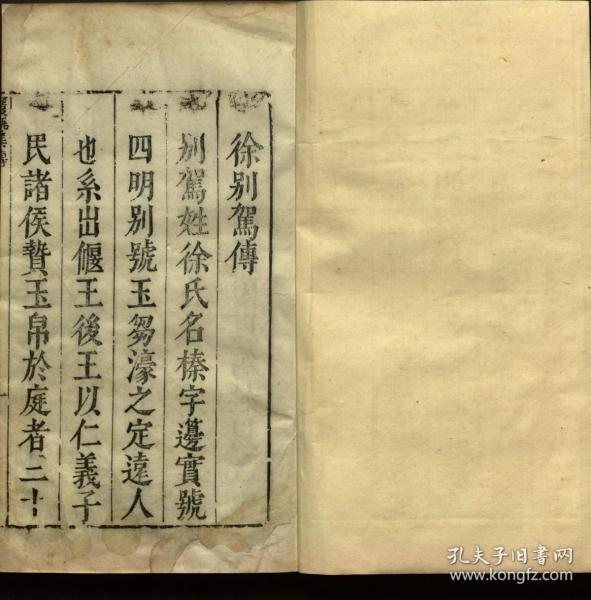 徐別駕傳
別駕姓徐氏名榛字邊實號
四明別號玉芻濠之定遠人
也系出偃王後王以仁義子
民諸侯贄玉帛於庭者三十
孔夫子旧书网
www.kongfz.com